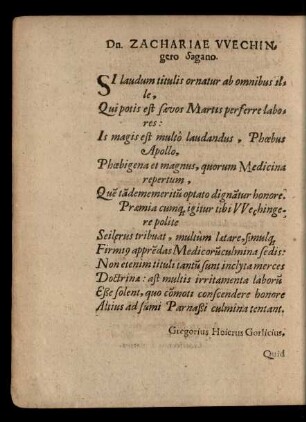 Dn. ZACHARIAE VVECHIN,
gero Sagano.
SI laudum titulis ornatur ab omnibus il-
le,
Qui potis est sævos Martis perferre labo-
res:
Is magis est multò laudandus, Phœbus
Apollo,
Phœbigena et magnus, quorum Medicina
repertum,
Quẽ tãdem emeritũ optato dignãtur honore.
Præmia cumq́, igitur tibi VVechinge-
re polite
Seilerus tribuat, multùm lætare, simulq́,
Firmiq́ apprẽdas Medicorũ culmina sedis:
Non etenim tituli tantũ sunt inclyta merces
Doctrinæ: ast multis irritamenta laborũ
Esse solent, quo cõmoti conscendere honore
Altius ad sũmi Parnaßi culmina tentant.
Gregorius Hoierus Gorlicius.
Quid